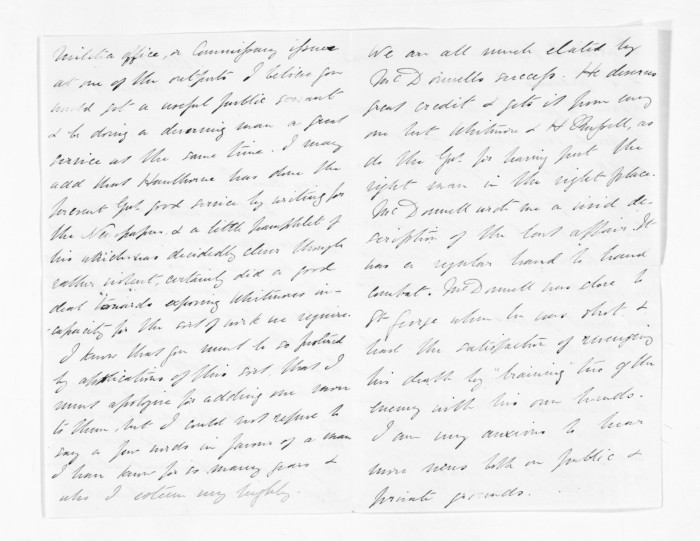 Militia office, or Commissary issuer
at one of the outposts I believe you
would get a useful public servant
& be doing a deserving man a great
service at the same time. I may
add that Hawthorne has done the
present Govt. good service by writing for
the Newspapers & a little pamphlet of
his which was decidedly clever though
rather violent, certainly did a good
deal towards exposing Whitmores in-
capacity for the sort of work we require.
I know that you must be so pestered
by applications of this sort that I
must apologise for adding one more
to them but I could not refuse to
say a few words in favour of a man
I have known for so many years &
who I esteem very highly.
We are all much elated by
McDonnells success. He deserves
great credit & gets it from every
one but Whitmore & H Russell, as
do the Govt. for having put the
right man in the right place.
McDonnell wrote me a vivid de-
scription of the last affair. It
was a regular hand to hand
combat. McDonnell was close to
St. George when he was shot &
had the satisfaction of revenging
his death by "braining" two of the
enemy with his own hands.
I am very anxious to hear
more news both on public &
private grounds.